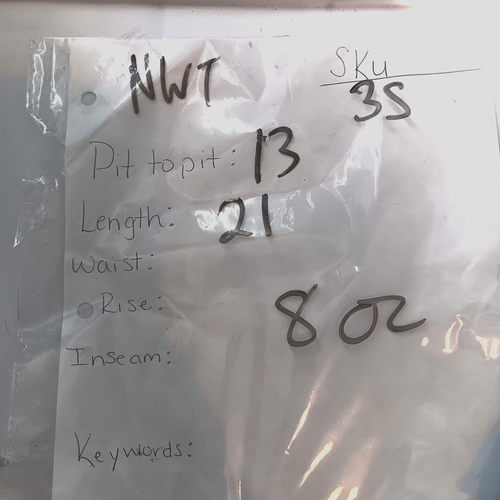 NWT
SKU
35
Pit to pit: 13
Length: 21
Waist:
Rise:
8 oz
Inseam:
Keywords: